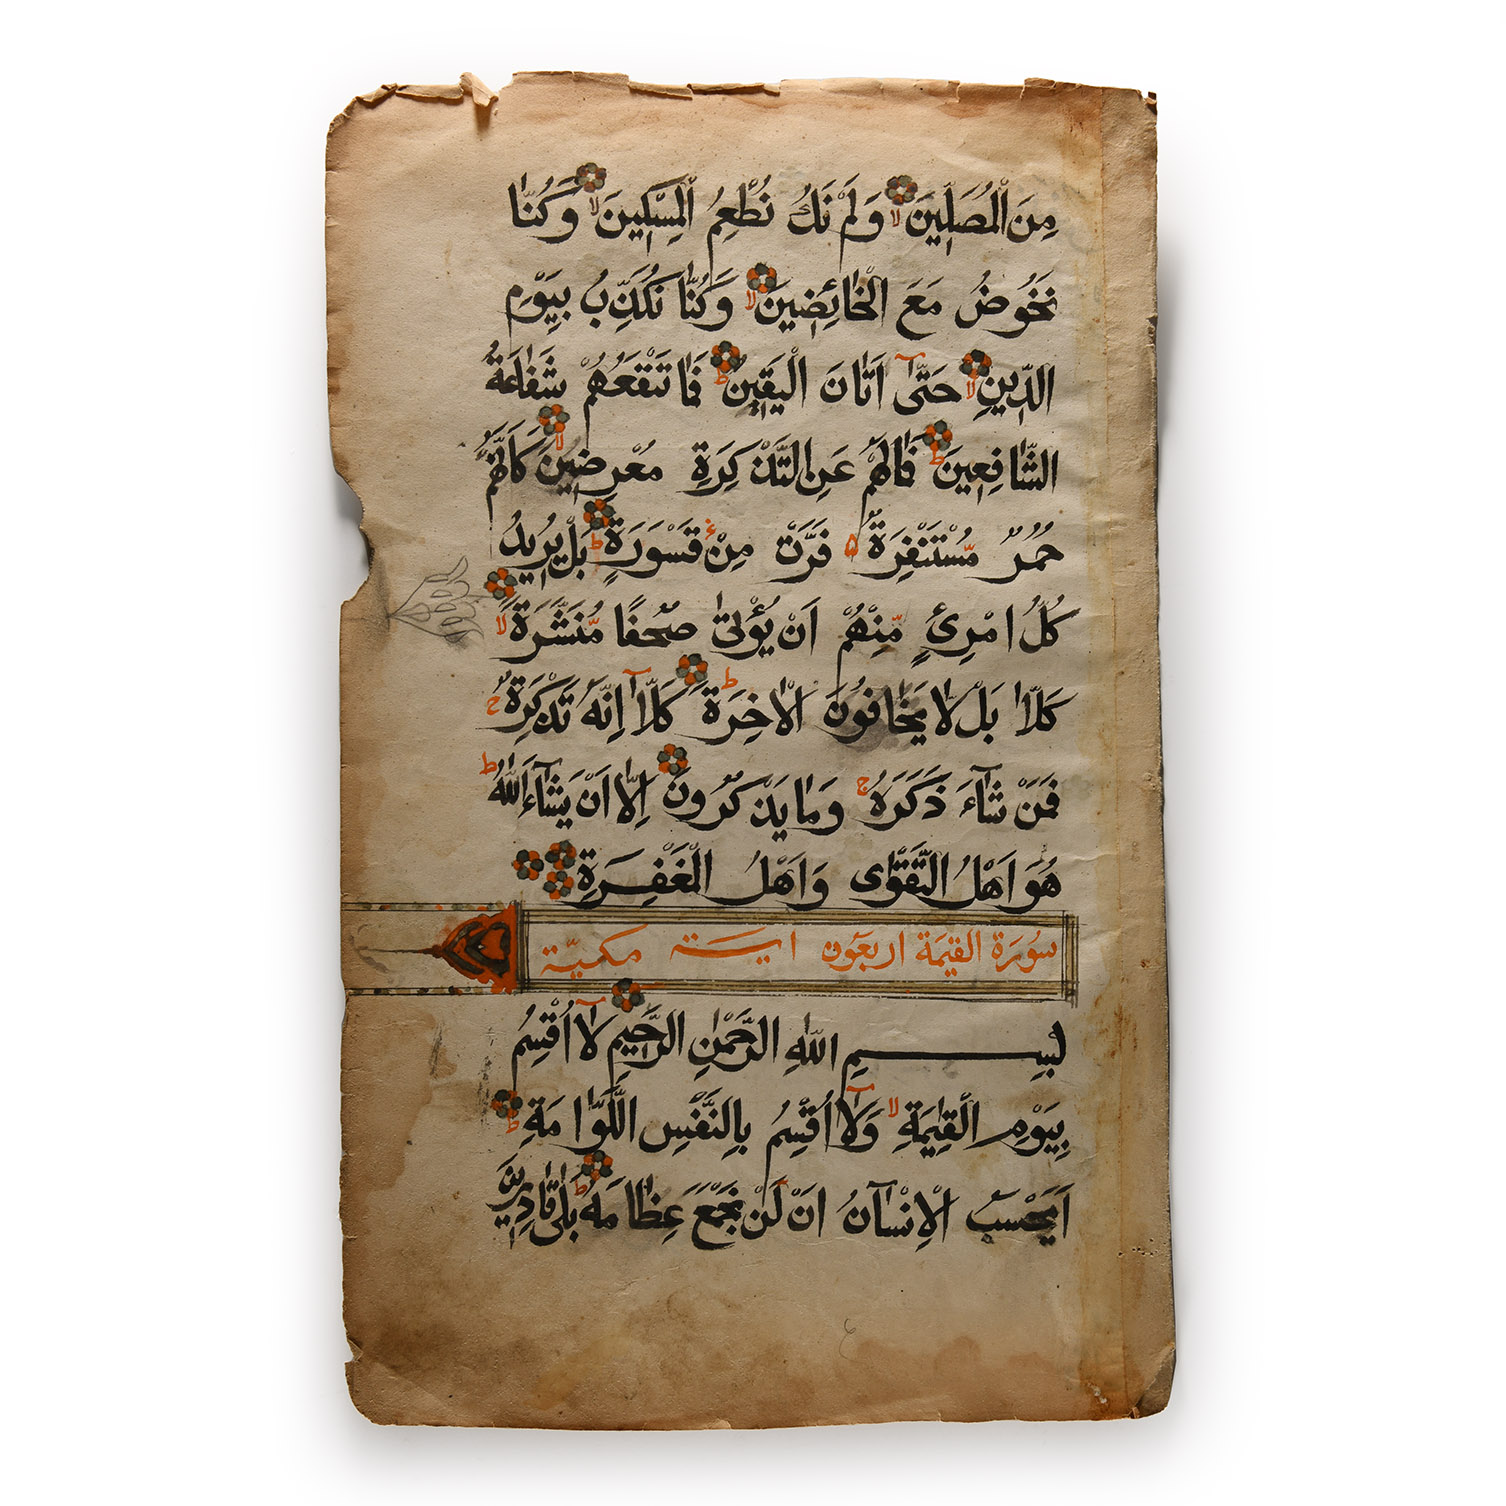 مِنَ الْمُصَلِّينَ ۙ وَلَمْ نَكُ نُطْعِمُ الْمِسْكِينَ ۙ وَكُنَّا
نَخُوضُ مَعَ الْخَائِضِينَ ۙ وَكُنَّا نُكَذِّبُ بِيَوْمِ
الدِّينِ ۙ حَتَّىٰٓ اَتَانَ الْيَقِينُ ۭ فَمَا تَنْفَعُهُمْ شَفَاعَةُ
الشَّافِعِينَ ۭ فَمَا لَهُمْ عَنِ التَّذْكِرَةِ مُعْرِضِينَ ۙ كَاَنَّهُمْ
حُمُرٌ مُّسْتَنْفِرَةٌ ۵ فَرَّتْ مِنْ قَسْوَرَةٍ ۭ بَلْ يُرِيدُ
كُلُّ امْرِئٍ مِّنْهُمْ اَنْ يُؤْتىٰ صُحُفًا مُّنَشَّرَةً ۙ
كَلَّا بَلْ لَا يَخَافُونَ الْاٰخِرَةَ ۭ كَلَّآ اِنَّهُ تَذْكِرَةٌ ۚ
فَمَنْ شَآءَ ذَكَرَهُ ۚ وَمَا يَذْكُرُونَ اِلَّا اَنْ يَشَآءَ اللّٰهُ ۭ
هُوَ اَهْلُ التَّقْوَى وَاَهْلُ الْمَغْفِرَةِ
سورة القيمة اربعون اية مكيّة
بِسْمِ اللّٰهِ الرَّحْمٰنِ الرَّحِيمِ لَآ اُقْسِمُ
بِيَوْمِ الْقِيٰمَةِ ۙ وَلَآ اُقْسِمُ بِالنَّفْسِ اللَّوَّامَةِ ۭ
اَيَحْسَبُ الْاِنْسَانُ اَنْ لَنْ نَجْمَعَ عِظَامَهُ ۭ بَلٰى قَادِرِينَ